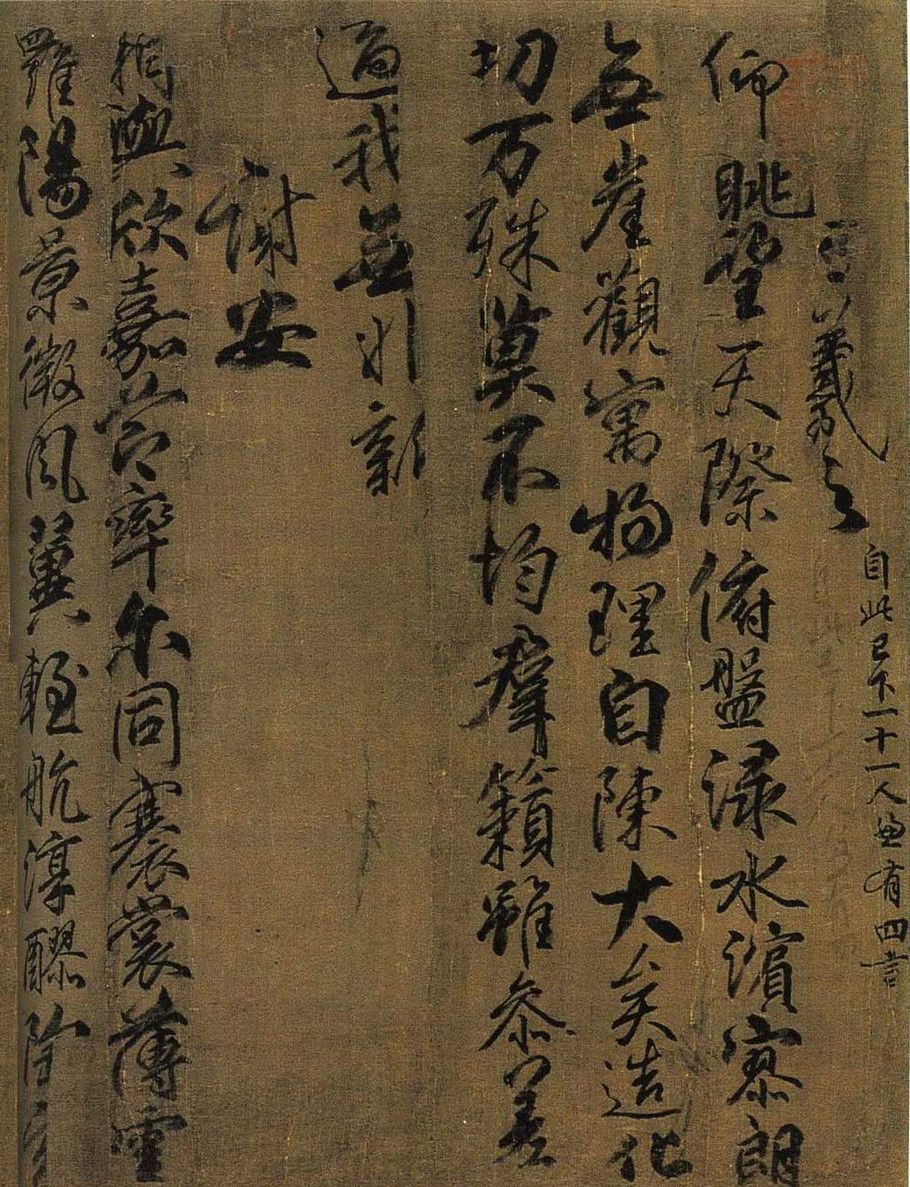 王羲之
自此已下一十一人有四言
仰眺望天際俯盤淥水濱寥朗
無崖觀寓物理自陳大矣造化
切万殊莫不均羣籟雖參差
適我無非新
謝安
相與欣嘉節率尒同褰裳薄雲
羅陽景微風翼輕航淳醪陶丹